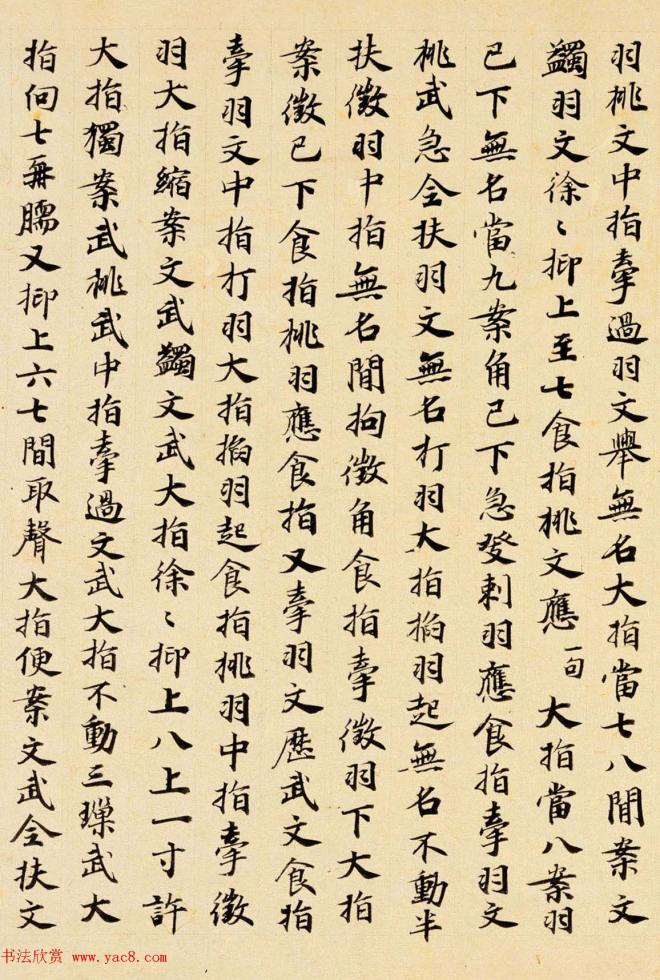 羽桃文中指牽過羽文舉無名大指當七八間案文
蠲羽文徐〻抑上至七食指桃文應一句大指當八案羽
已下無名當九案角已下急發刺羽應食指牽羽文
桃武急全扶羽文無名打羽大指搯羽起無名不動半
扶徵羽中指無名間拘徵角食指牽徵羽下大指
案徵已下食指桃羽應食指又牽羽文歷武文食指
牽羽文中指打羽大指搯羽起食指挑羽中指牽徵
羽大指縮案文武蠲文武大指徐〻抑上八上一寸許
大指獨案武桃武中指牽過文武大指不動三璅武大
指向七再臑又抑上六七間取聲大指便案文武全扶文
书法欣赏 www.yac8.com